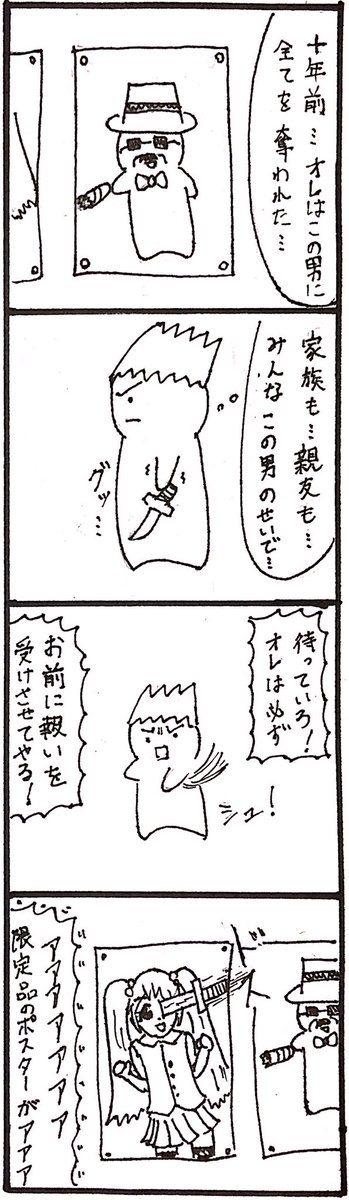 十年前…オレはこの男に
全てを奪われた…
家族も…親友も…
みんなこの男のせいで…
グッ…
待っていろ!
オレは必ず
シュ!
お前に報いを
受けさせてやる!
ドッ
アアアアアアア
限定品のポスターがアアア